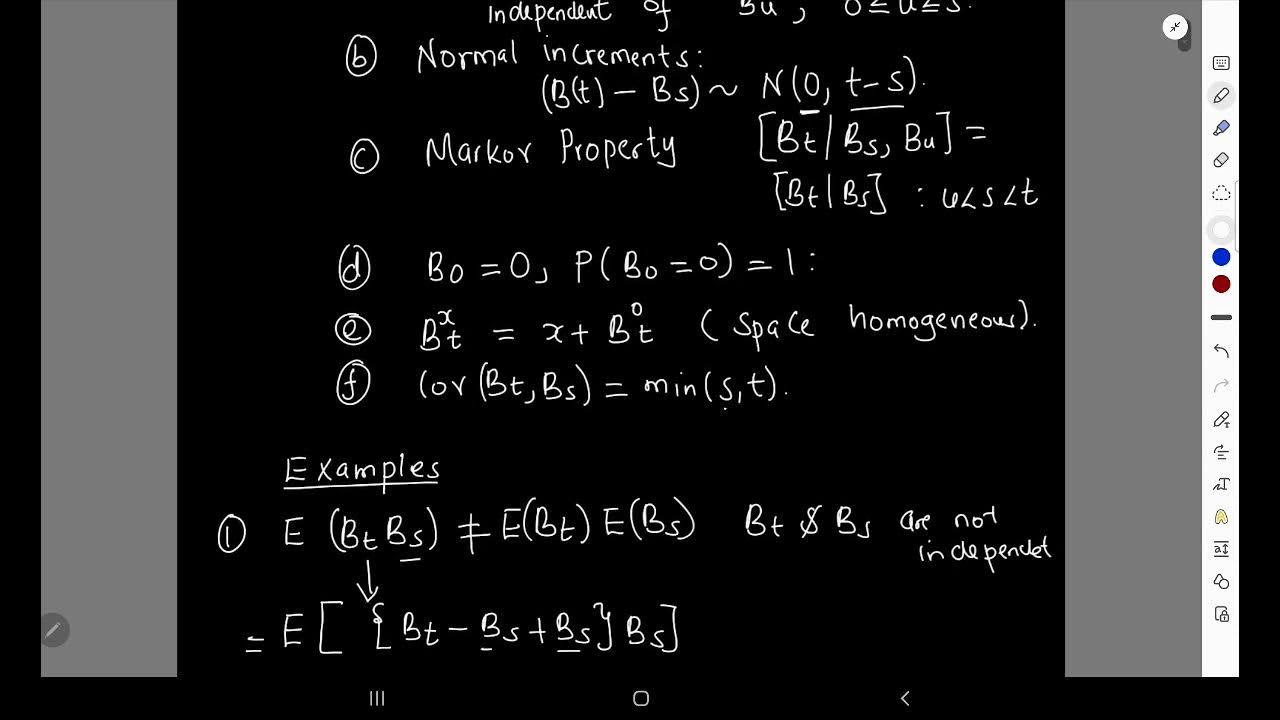 independent of Bu, 0≤u≤s.
ⓑ Normal increments:
(B(t) - Bs) ~ N(0, t-s).
ⓒ Markov Property [Bt | Bs, Bu] =
[Bt | Bs] : u<s<t
ⓓ B0 = 0, P(B0 = 0) = 1 :
ⓔ Bˣt = x + B⁰t (Space homogeneous).
ⓕ Cov(Bt, Bs) = min(s,t).
Examples
① E (Bt Bs) ≠ E(Bt) E(Bs) Bt & Bs are not
independet
= E[ {Bt - Bs + Bs} Bs]